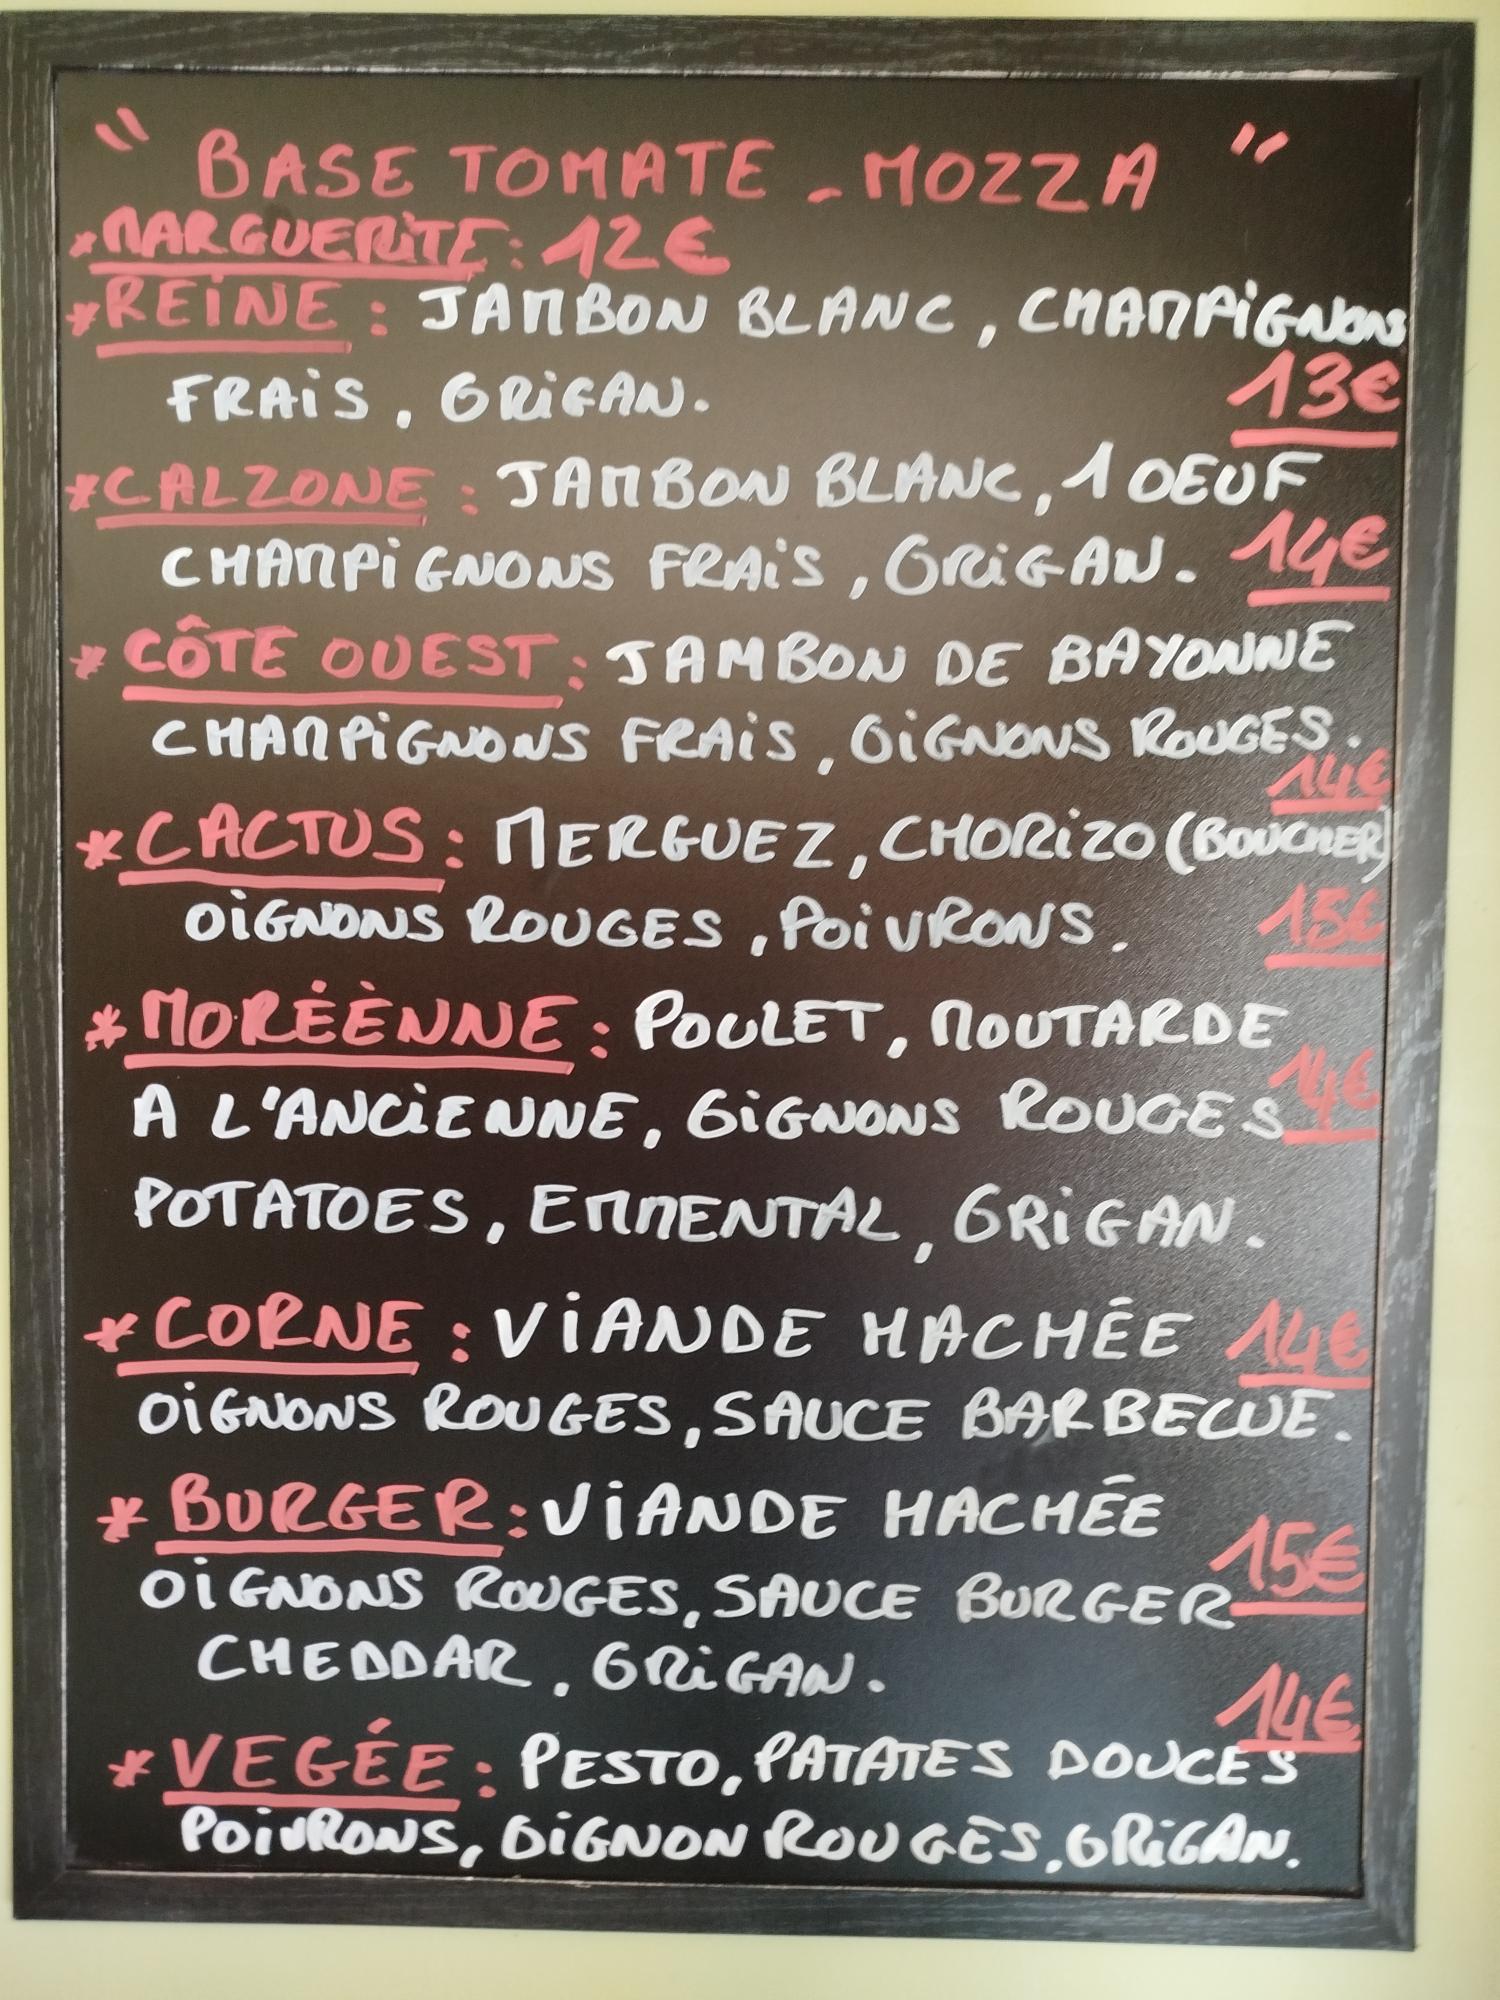 " BASE TOMATE - MOZZA "
*MARGUERITE : 12€
*REINE : JAMBON BLANC, CHAMPIGNONS
FRAIS, ORIGAN. 13€
*CALZONE : JAMBON BLANC, 1 OEUF
CHAMPIGNONS FRAIS, ORIGAN. 14€
* CÔTE OUEST : JAMBON DE BAYONNE
CHAMPIGNONS FRAIS, OIGNONS ROUGES.
14€
* CACTUS : MERGUEZ, CHORIZO (BOUCHER)
OIGNONS ROUGES, POIVRONS. 15€
* MORÉÈNNE : POULET, MOUTARDE
A L'ANCIENNE, OIGNONS ROUGES 14€
POTATOES, EMMENTAL, ORIGAN.
* CORNE : VIANDE HACHÉE 14€
OIGNONS ROUGES, SAUCE BARBECUE.
* BURGER : VIANDE HACHÉE
OIGNONS ROUGES, SAUCE BURGER 15€
CHEDDAR, ORIGAN.
14€
* VEGÉE : PESTO, PATATES DOUCES
POIVRONS, OIGNON ROUGES, ORIGAN.